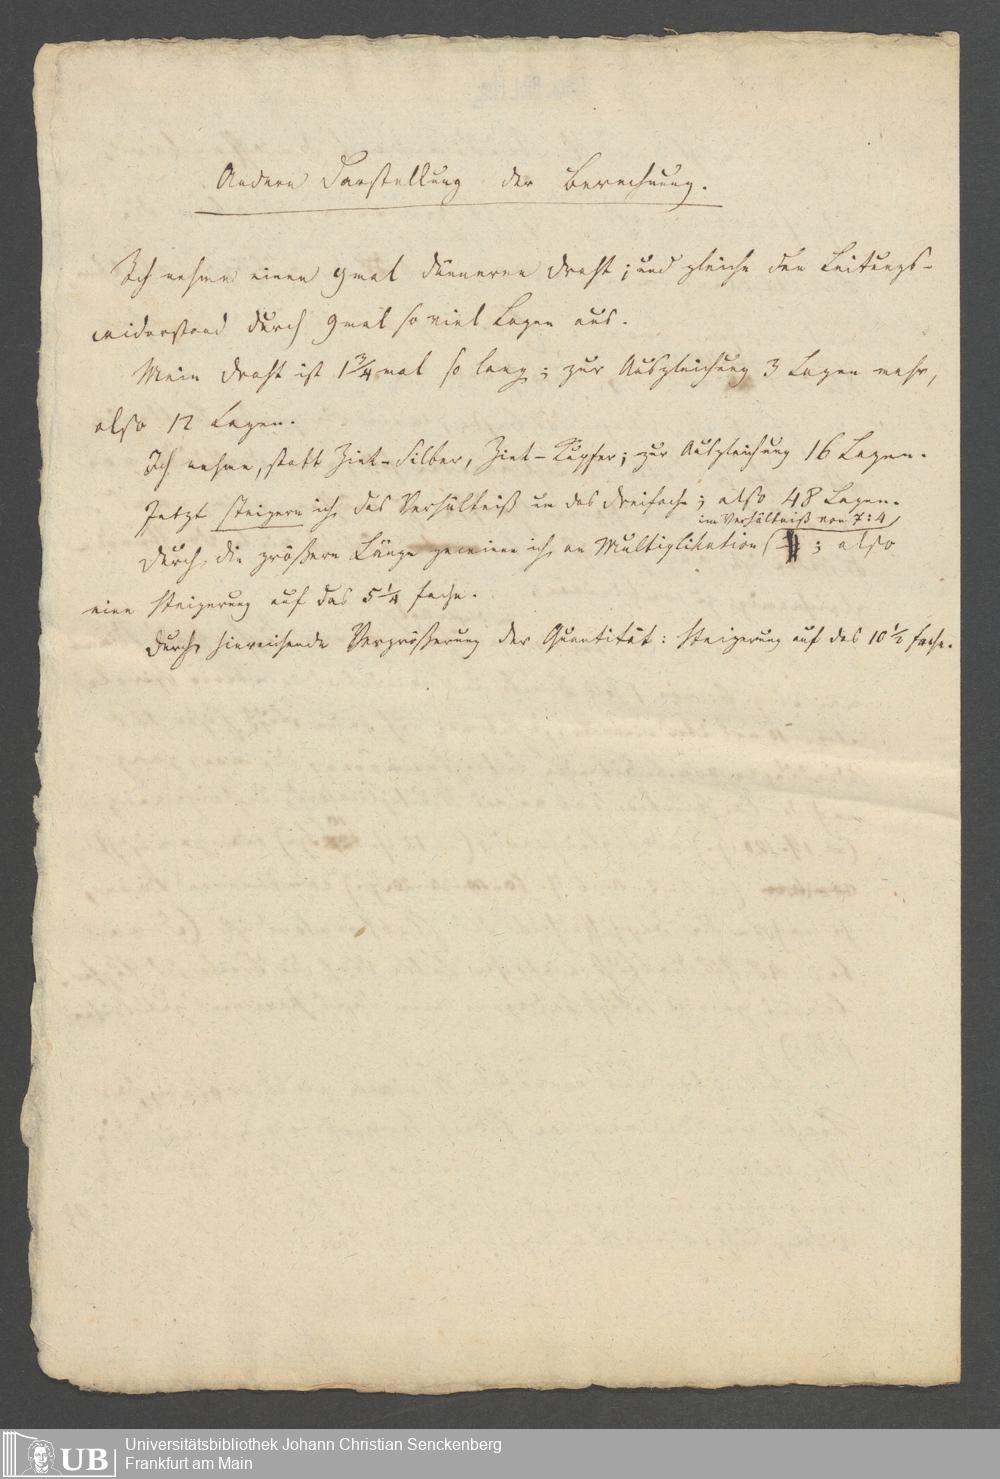 Andere Darstellung der Berechnung.
Ich nehme einen 9mal dünneren Draht; und gleiche den Leitungs-
widerstand durch 9mal so viel Lagen aus.
Mein Draht ist 1 3/4 mal so lang; zur Ausgleichung 3 Lagen mehr,
also 12 Lagen.
Ich nehme, statt Zink-Silber, Zink-Kupfer; zur Ausgleichung 16 Lagen.
Jetzt steigere ich das Verhältniß um das dreifache; also 48 Lagen.
im Verhältniß von 7:4
Durch die größere Länge gewinne ich an Multiplikation ; also
eine Steigerung auf das 5 1/4 fache.
Durch hinreichende Vergrößerung der Quantität: Steigerung auf das 10 1/2 fache.
UB
Universitätsbibliothek Johann Christian Senckenberg
Frankfurt am Main